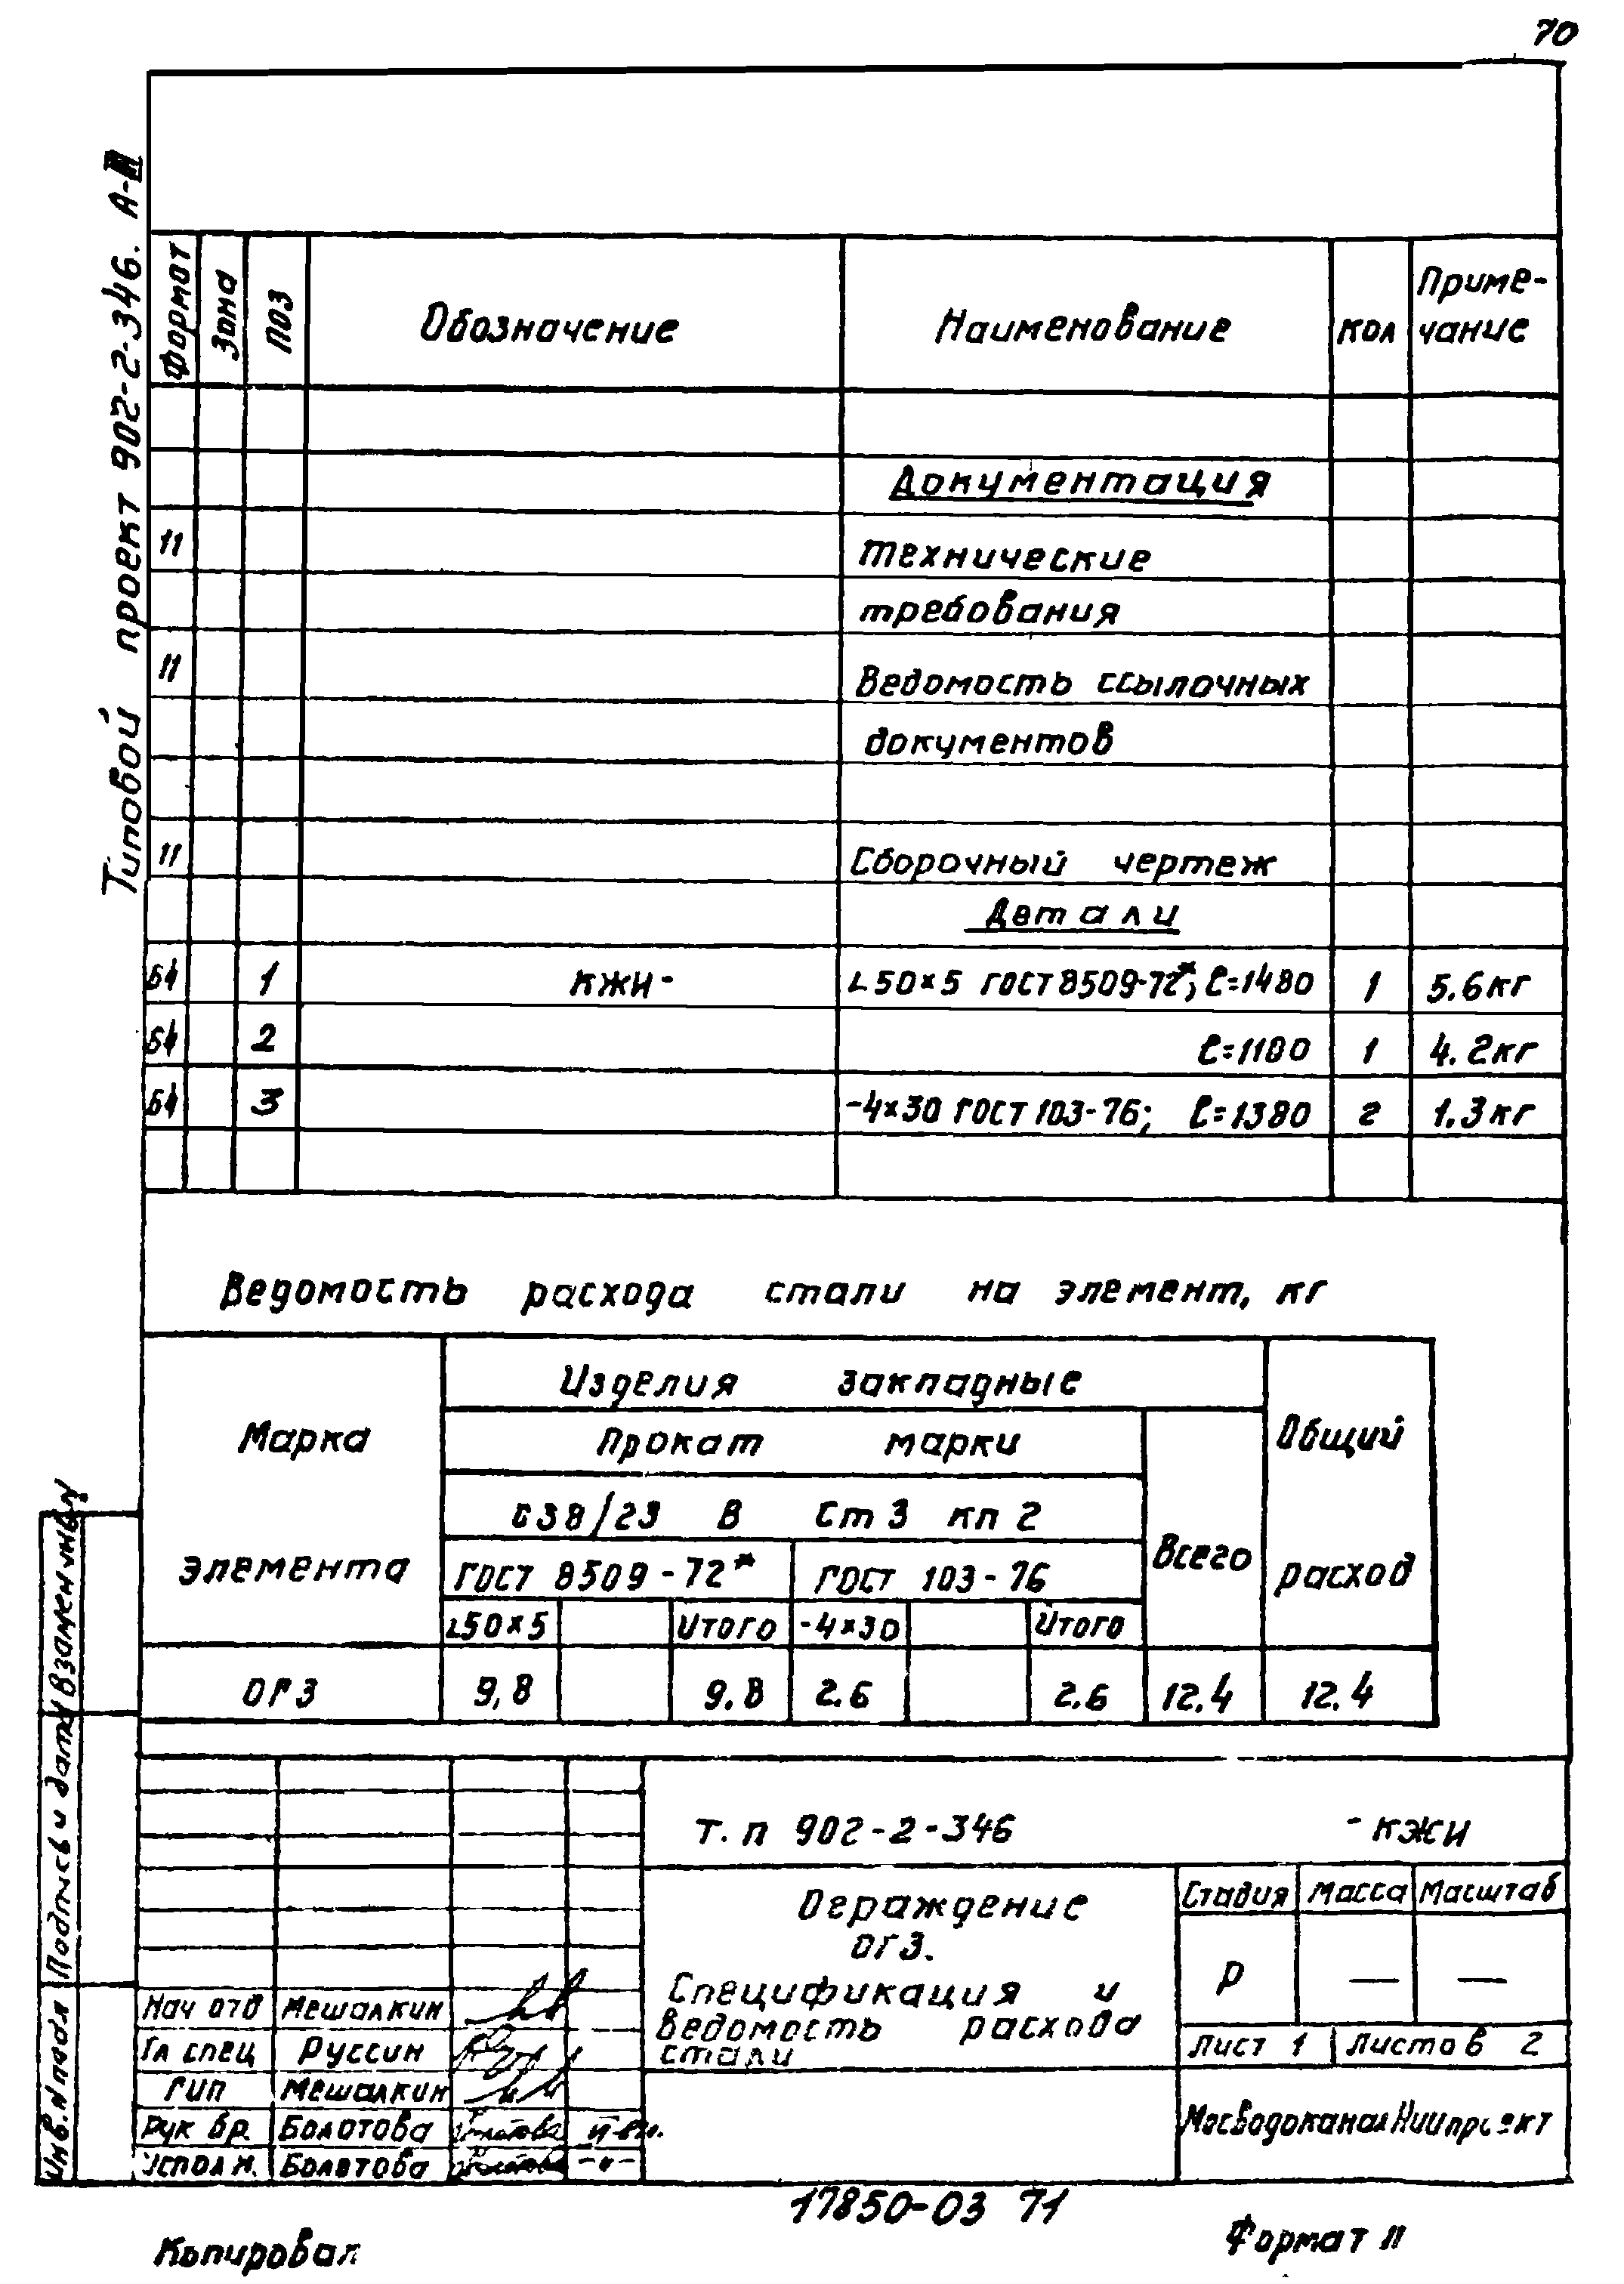 70
Типовой проект 902-2-346. А-III
Формат Зона Поз Обозначение Наименование Кол Приме-
чание
Документация
11 Технические
требования
11 Ведомость ссылочных
документов
11 Сборочный чертеж
Детали
БЧ 1 КЖИ- L50×5 ГОСТ 8509-72*; ℓ=1480 1 5.6кг
БЧ 2 ℓ=1180 1 4.2кг
БЧ 3 -4×30 ГОСТ 103-76; ℓ=1380 2 1.3кг
Ведомость расхода стали на элемент, кг
Марка элемента
Изделия закладные
Общий расход
Прокат марки
Всего
С38/23 В Ст 3 кп 2
ГОСТ 8509-72* ГОСТ 103-76
L50×5 Итого -4×30 Итого
ОГ3 9,8 9.8 2.6 2.6 12.4 12.4
Т.п 902-2-346 -КЖИ
Ограждение
ОГ3.
Спецификация и
ведомость расхода
стали
Стадия Масса Масштаб
Р — —
Лист 1 Листов 2
МосводоканалНИИпроект
Нач отд Мешалкин
Гл спец Руссин
ГИП Мешалкин
Рук бр. Болотова
Исполн. Болотова -"-
Взамен инв. N
Подпись и дата
Инв. N подл
17850-03 71
Копировал
Формат 11